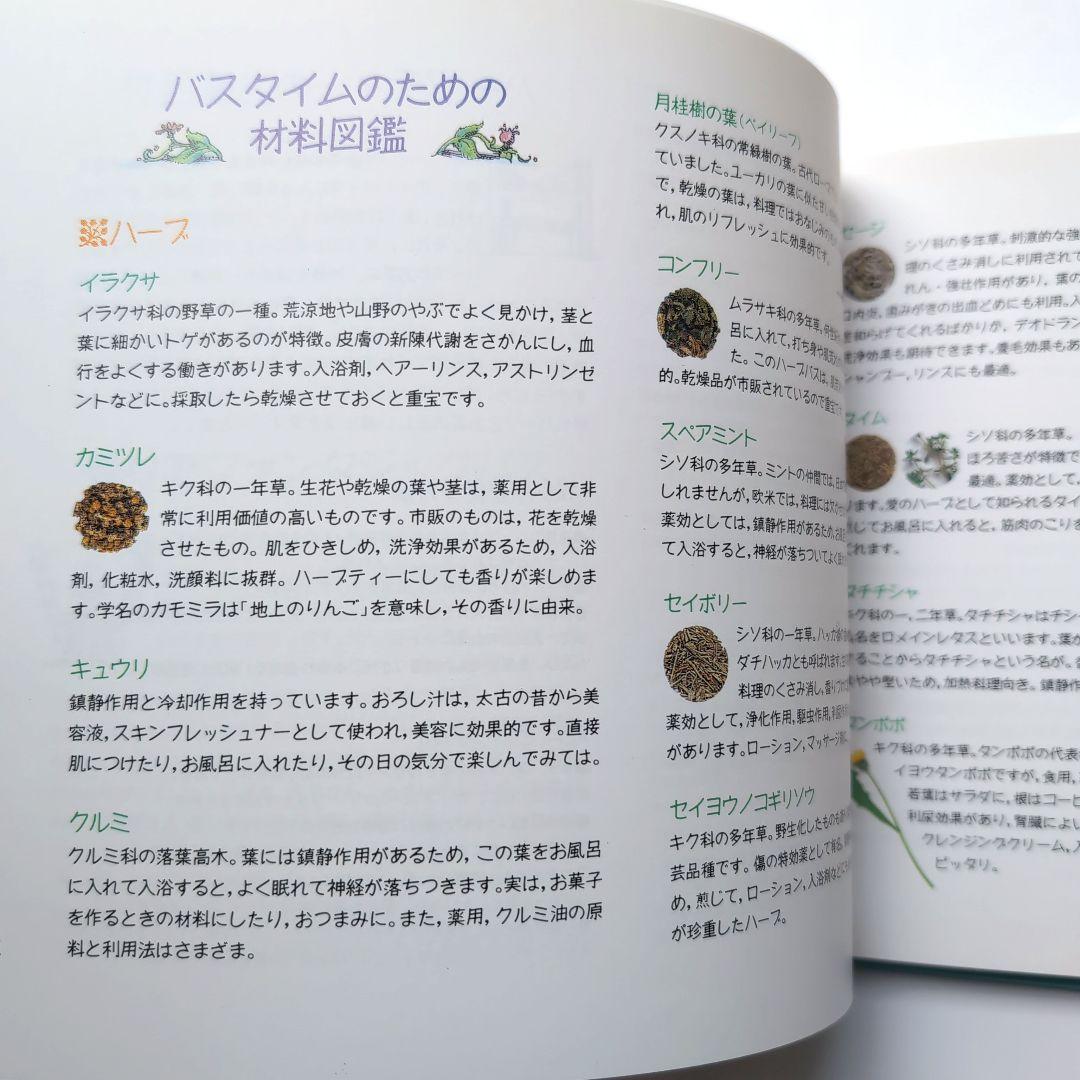 バスタイムのための
材料図鑑
ハーブ
イラクサ
イラクサ科の野草の一種。荒涼地や山野のやぶでよく見かけ，茎と
葉に細かいトゲがあるのが特徴。皮膚の新陳代謝をさかんにし，血
行をよくする働きがあります。入浴剤，ヘアーリンス，アストリンゼ
ントなどに。採取したら乾燥させておくと重宝です。
カミツレ
キク科の一年草。生花や乾燥の葉や茎は，薬用として非
常に利用価値の高いものです。市販のものは，花を乾燥
させたもの。肌をひきしめ，洗浄効果があるため，入浴
剤，化粧水，洗顔料に抜群。ハーブティーにしても香りが楽しめま
す。学名のカモミラは「地上のりんご」を意味し，その香りに由来。
キュウリ
鎮静作用と冷却作用を持っています。おろし汁は，太古の昔から美
容液，スキンフレッシュナーとして使われ，美容に効果的です。直接
肌につけたり，お風呂に入れたり，その日の気分で楽しんでみては。
クルミ
クルミ科の落葉高木。葉には鎮静作用があるため，この葉をお風呂
に入れて入浴すると，よく眠れて神経が落ちつきます。実は，お菓子
を作るときの材料にしたり，おつまみに。また，薬用，クルミ油の原
料と利用法はさまざま。
月桂樹の葉（ベイリーフ）
クスノキ科の常緑樹の葉。古代ロー
ていました。ユーカリの葉に似た甘い
で，乾燥の葉は，料理ではおなじみの
れ，肌のリフレッシュに効果的です。
コンフリー
ムラサキ科の多年草。
呂に入れて，打ち身や
た。このハーブバスは，
的。乾燥品が市販されているので重宝
スペアミント
シソ科の多年草。ミントの仲間では，
しれませんが，欧米では，料理には
薬効としては，鎮静作用があるため，
て入浴すると，神経が落ちついてよく
セイボリー
シソ科の一年草。ハッカ
ダチハッカとも呼ばれます。
料理のくさみ消し，香り
薬効として，浄化作用，駆虫作用，
があります。ローション，マッサージ
セイヨウノコギリソウ
キク科の多年草。野生化したものも
芸品種です。傷の特効薬として
め，煎じて，ローション，入浴剤などに
が珍重したハーブ。
セージ
シソ科の多年草。刺激的な強
理のくさみ消しに利用されて
れん・強壮作用があり，葉の
歯みがきの出血どめにも利用。
を和らげてくれるばかりか，デオドラン
洗浄効果も期待できます。養毛効果もあ
シャンプー，リンスにも最適。
タイム
シソ科の多年草。
ほろ苦さが特徴で
最適。薬効として，
ます。愛のハーブとして知られるタイ
じてお風呂に入れると，筋肉のこりを
くれます。
タチチシャ
キク科の一，二年草。タチチシャはチシ
名をロメインレタスといいます。葉が
ることからタチチシャという名が。
やや堅いため，加熱料理向き。鎮静作
タンポポ
キク科の多年草。タンポポの代表
イヨウタンポポですが，食用，
若葉はサラダに，根はコーヒ
利尿効果があり，腎臓によい
クレンジングクリーム，
ピッタリ。